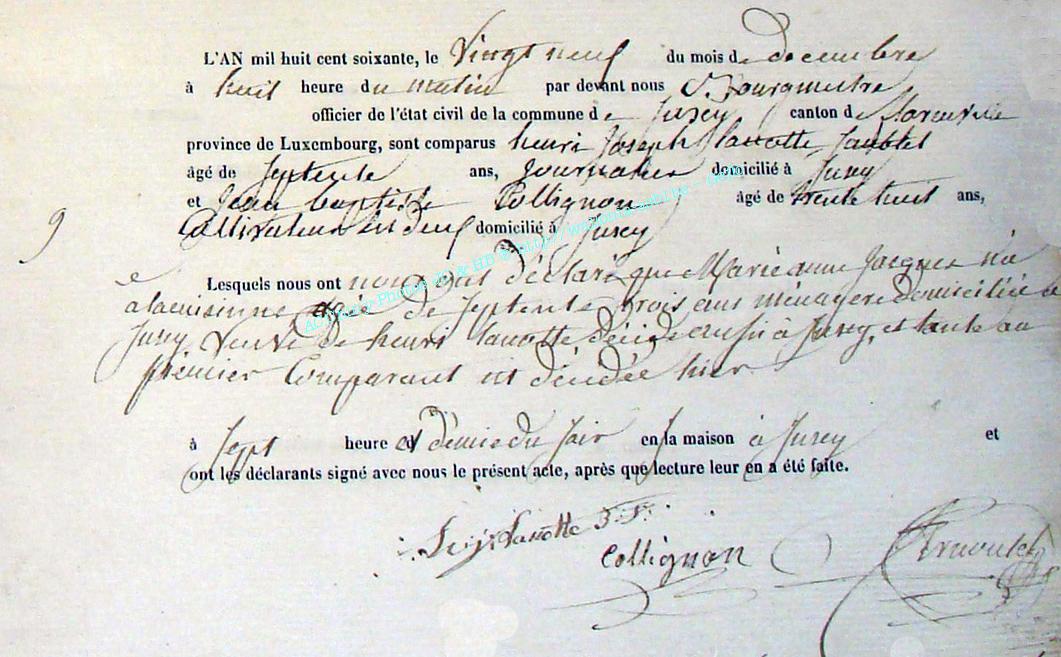 L'AN mil huit cent soixante, le Vingt neuf du mois de decembre
à huit heure du matin par devant nous Bourgmestre
officier de l'état civil de la commune de Jusey canton de florenville
province de Luxembourg, sont comparus henri Joseph Lanotte
âgé de Septente ans, Journalier domicilié à Jusey
et Jean baptiste Collignon âgé de trente huit ans,
Cultivateur domicilié à Jusey
9
Lesquels nous ont déclaré que Marie anne Jacques née
agée de Septente trois ans ménagere domiciliée a
Jusey Veuve de henri Lanotte à Jusey, et tante au
prémier Comparant est décédée hier
à Sept heure et démie du Soir en la maison à Jusey et
ont les déclarants signé avec nous le présent acte, après que lecture leur en a été faite.
Lanotte
Collignon